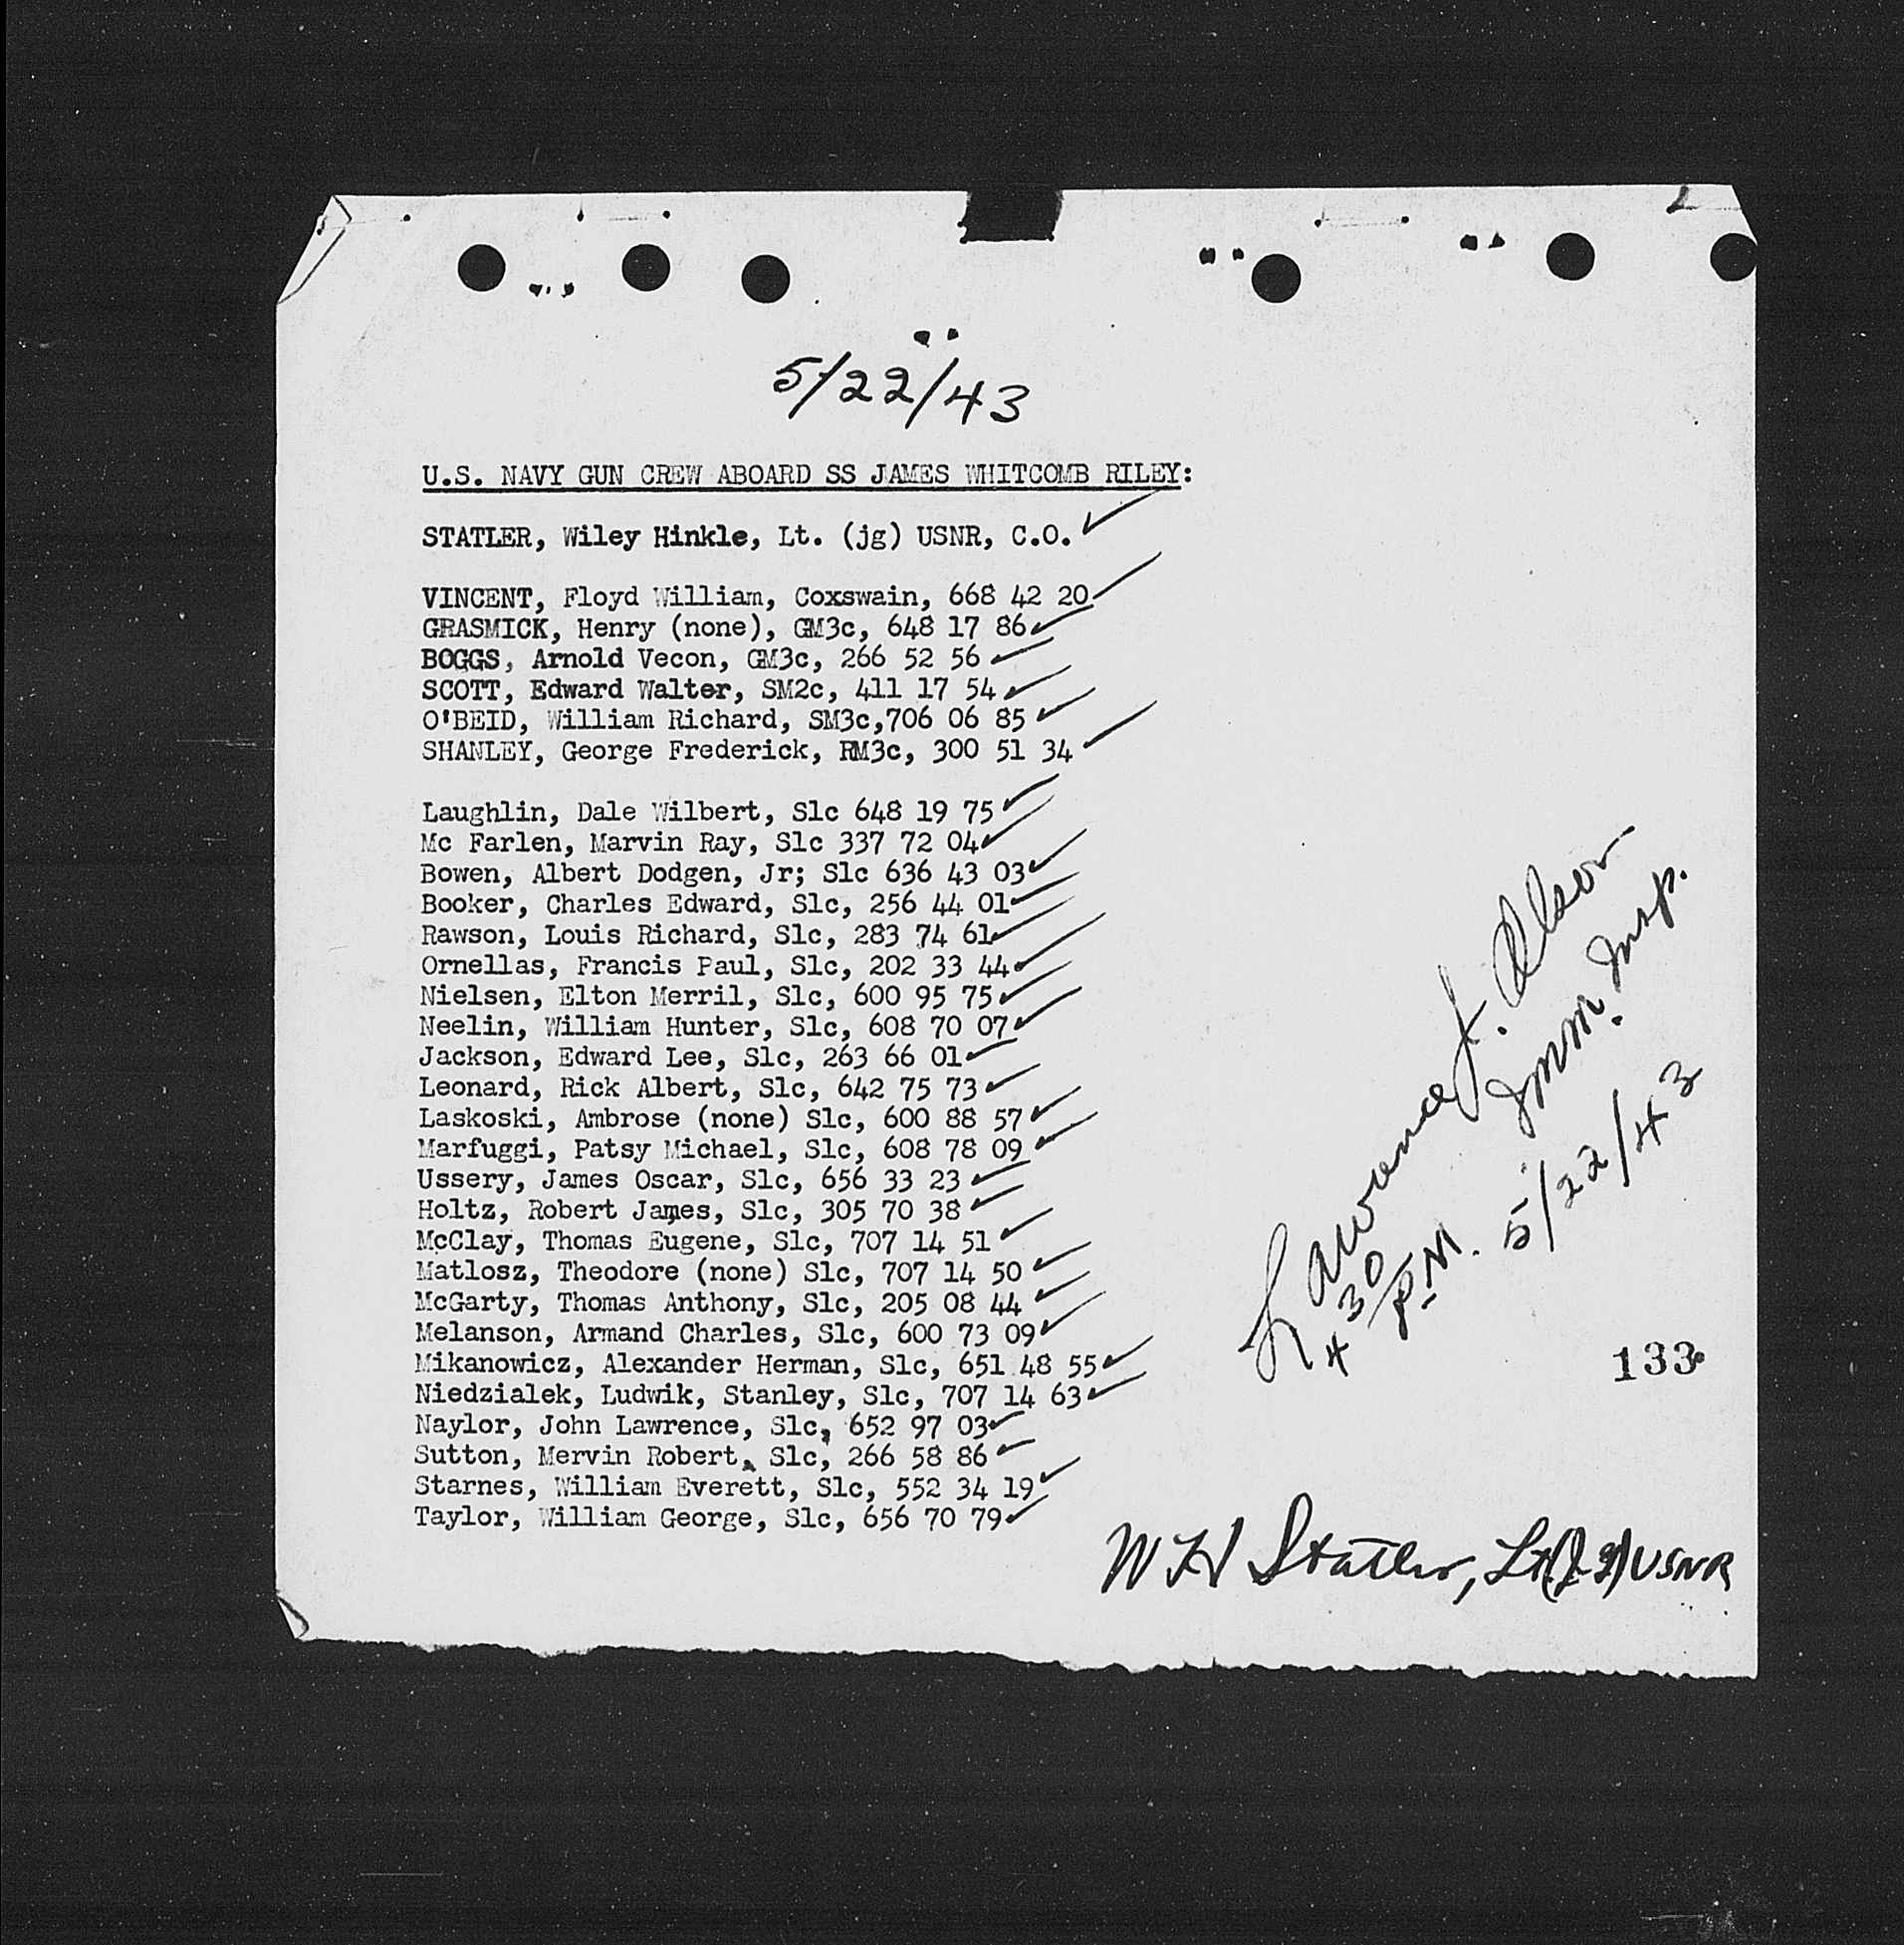 5/22/43
U.S. NAVY GUN CREW ABOARD SS JAMES WHITCOMB RILEY:
STATLER, Wiley Hinkle, Lt. (jg) USNR, C.O.
VINCENT, Floyd William, Coxswain, 668 42 20
GRASMICK, Henry (none), GM3c, 648 17 86
BOGGS, Arnold Vecon, GM3c, 266 52 56
SCOTT, Edward Walter, SM2c, 411 17 54
O'BEID, William Richard, SM3c,706 06 85
SHANLEY, George Frederick, RM3c, 300 51 34
Laughlin, Dale Wilbert, Slc 648 19 75
Mc Farlen, Marvin Ray, Slc 337 72 04
Bowen, Albert Dodgen, Jr; Slc 636 43 03
Booker, Charles Edward, Slc, 256 44 01
Rawson, Louis Richard, Slc, 283 74 61
Ornellas, Francis Paul, Slc, 202 33 44
Nielsen, Elton Merril, Slc, 600 95 75
Neelin, William Hunter, Slc, 608 70 07
Jackson, Edward Lee, Slc, 263 66 01
Leonard, Rick Albert, Slc, 642 75 73
Laskoski, Ambrose (none) Slc, 600 88 57
Marfuggi, Patsy Michael, Slc, 608 78 09
Ussery, James Oscar, Slc, 656 33 23
Holtz, Robert James, Slc, 305 70 38
McClay, Thomas Eugene, Slc, 707 14 51
Matlosz, Theodore (none) Slc, 707 14 50
McGarty, Thomas Anthony, Slc, 205 08 44
Melanson, Armand Charles, Slc, 600 73 09
Mikanowicz, Alexander Herman, Slc, 651 48 55
Niedzialek, Ludwik, Stanley, Slc, 707 14 63
Naylor, John Lawrence, Slc, 652 97 03
Sutton, Mervin Robert, Slc, 266 58 86
Starnes, William Everett, Slc, 552 34 19
Taylor, William George, Slc, 656 70 79
Lawrence J. Olson
Imm. Insp.
4 30 P.M. 5/22/43
133
W H Statler, Lt(Jg) USNR